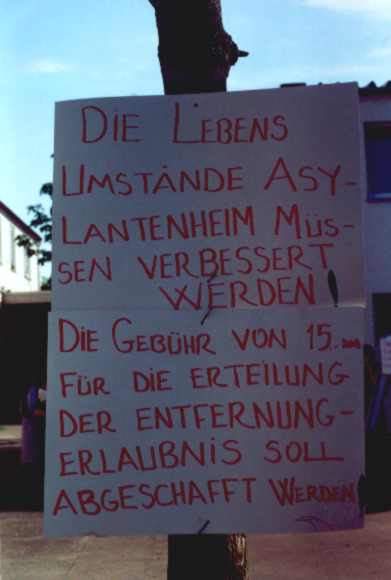 DIE LEBENS
UMSTÄNDE ASY-
LANTENHEIM MÜS-
SEN VERBESSERT
WERDEN!
DIE GEBÜHR VON 15.
FÜR DIE ERTEILUNG
DER ENTFERNUNG-
ERLAUBNIS SOLL
ABGESCHAFFT WERDEN!